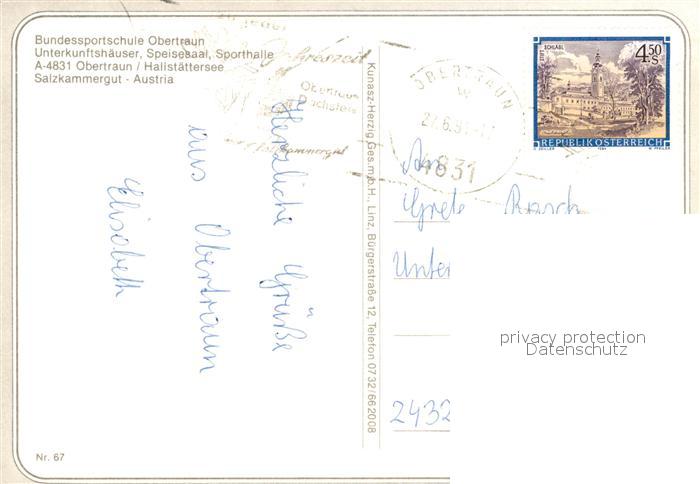 Bundessportschule Obertraun
Unterkunftshäuser, Speisesaal, Sporthalle
A-4831 Obertraun / Hallstättersee
Salzkammergut - Austria
zu jeder
Jahreszeit
Obertraun
Dachstein
Salzkammergut
OBERTRAUN
4831
STIFT
SCHLÄGL
4.50
S
REPUBLIK ÖSTERREICH
O. ZEILER 1984 W. PFEILER
Herzliche Grüße
aus Obertraun
Elisabeth
Kunasz-Herzig Ges.m.b.H., Linz, Bürgerstraße 12, Telefon 0732/662008
An
Grete
Unter
2432
privacy protection
Datenschutz
Nr. 67